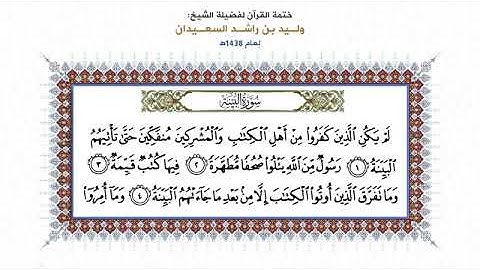 ختمة القرآن لفضيلة الشيخ:
وليد بن راشد السعيدان
لعام 1438هـ
سورة البينة
لَمْ يَكُنِ الَّذِينَ كَفَرُوا مِنْ أَهْلِ الْكِتَابِ وَالْمُشْرِكِينَ مُنفَكِّينَ حَتَّىٰ تَأْتِيَهُمُ
الْبَيِّنَةُ ۝١ رَسُولٌ مِّنَ اللَّهِ يَتْلُو صُحُفًا مُّطَهَّرَةً ۝٢ فِيهَا كُتُبٌ قَيِّمَةٌ ۝٣
وَمَا تَفَرَّقَ الَّذِينَ أُوتُوا الْكِتَابَ إِلَّا مِن بَعْدِ مَا جَاءَتْهُمُ الْبَيِّنَةُ ۝٤ وَمَا أُمِرُوا